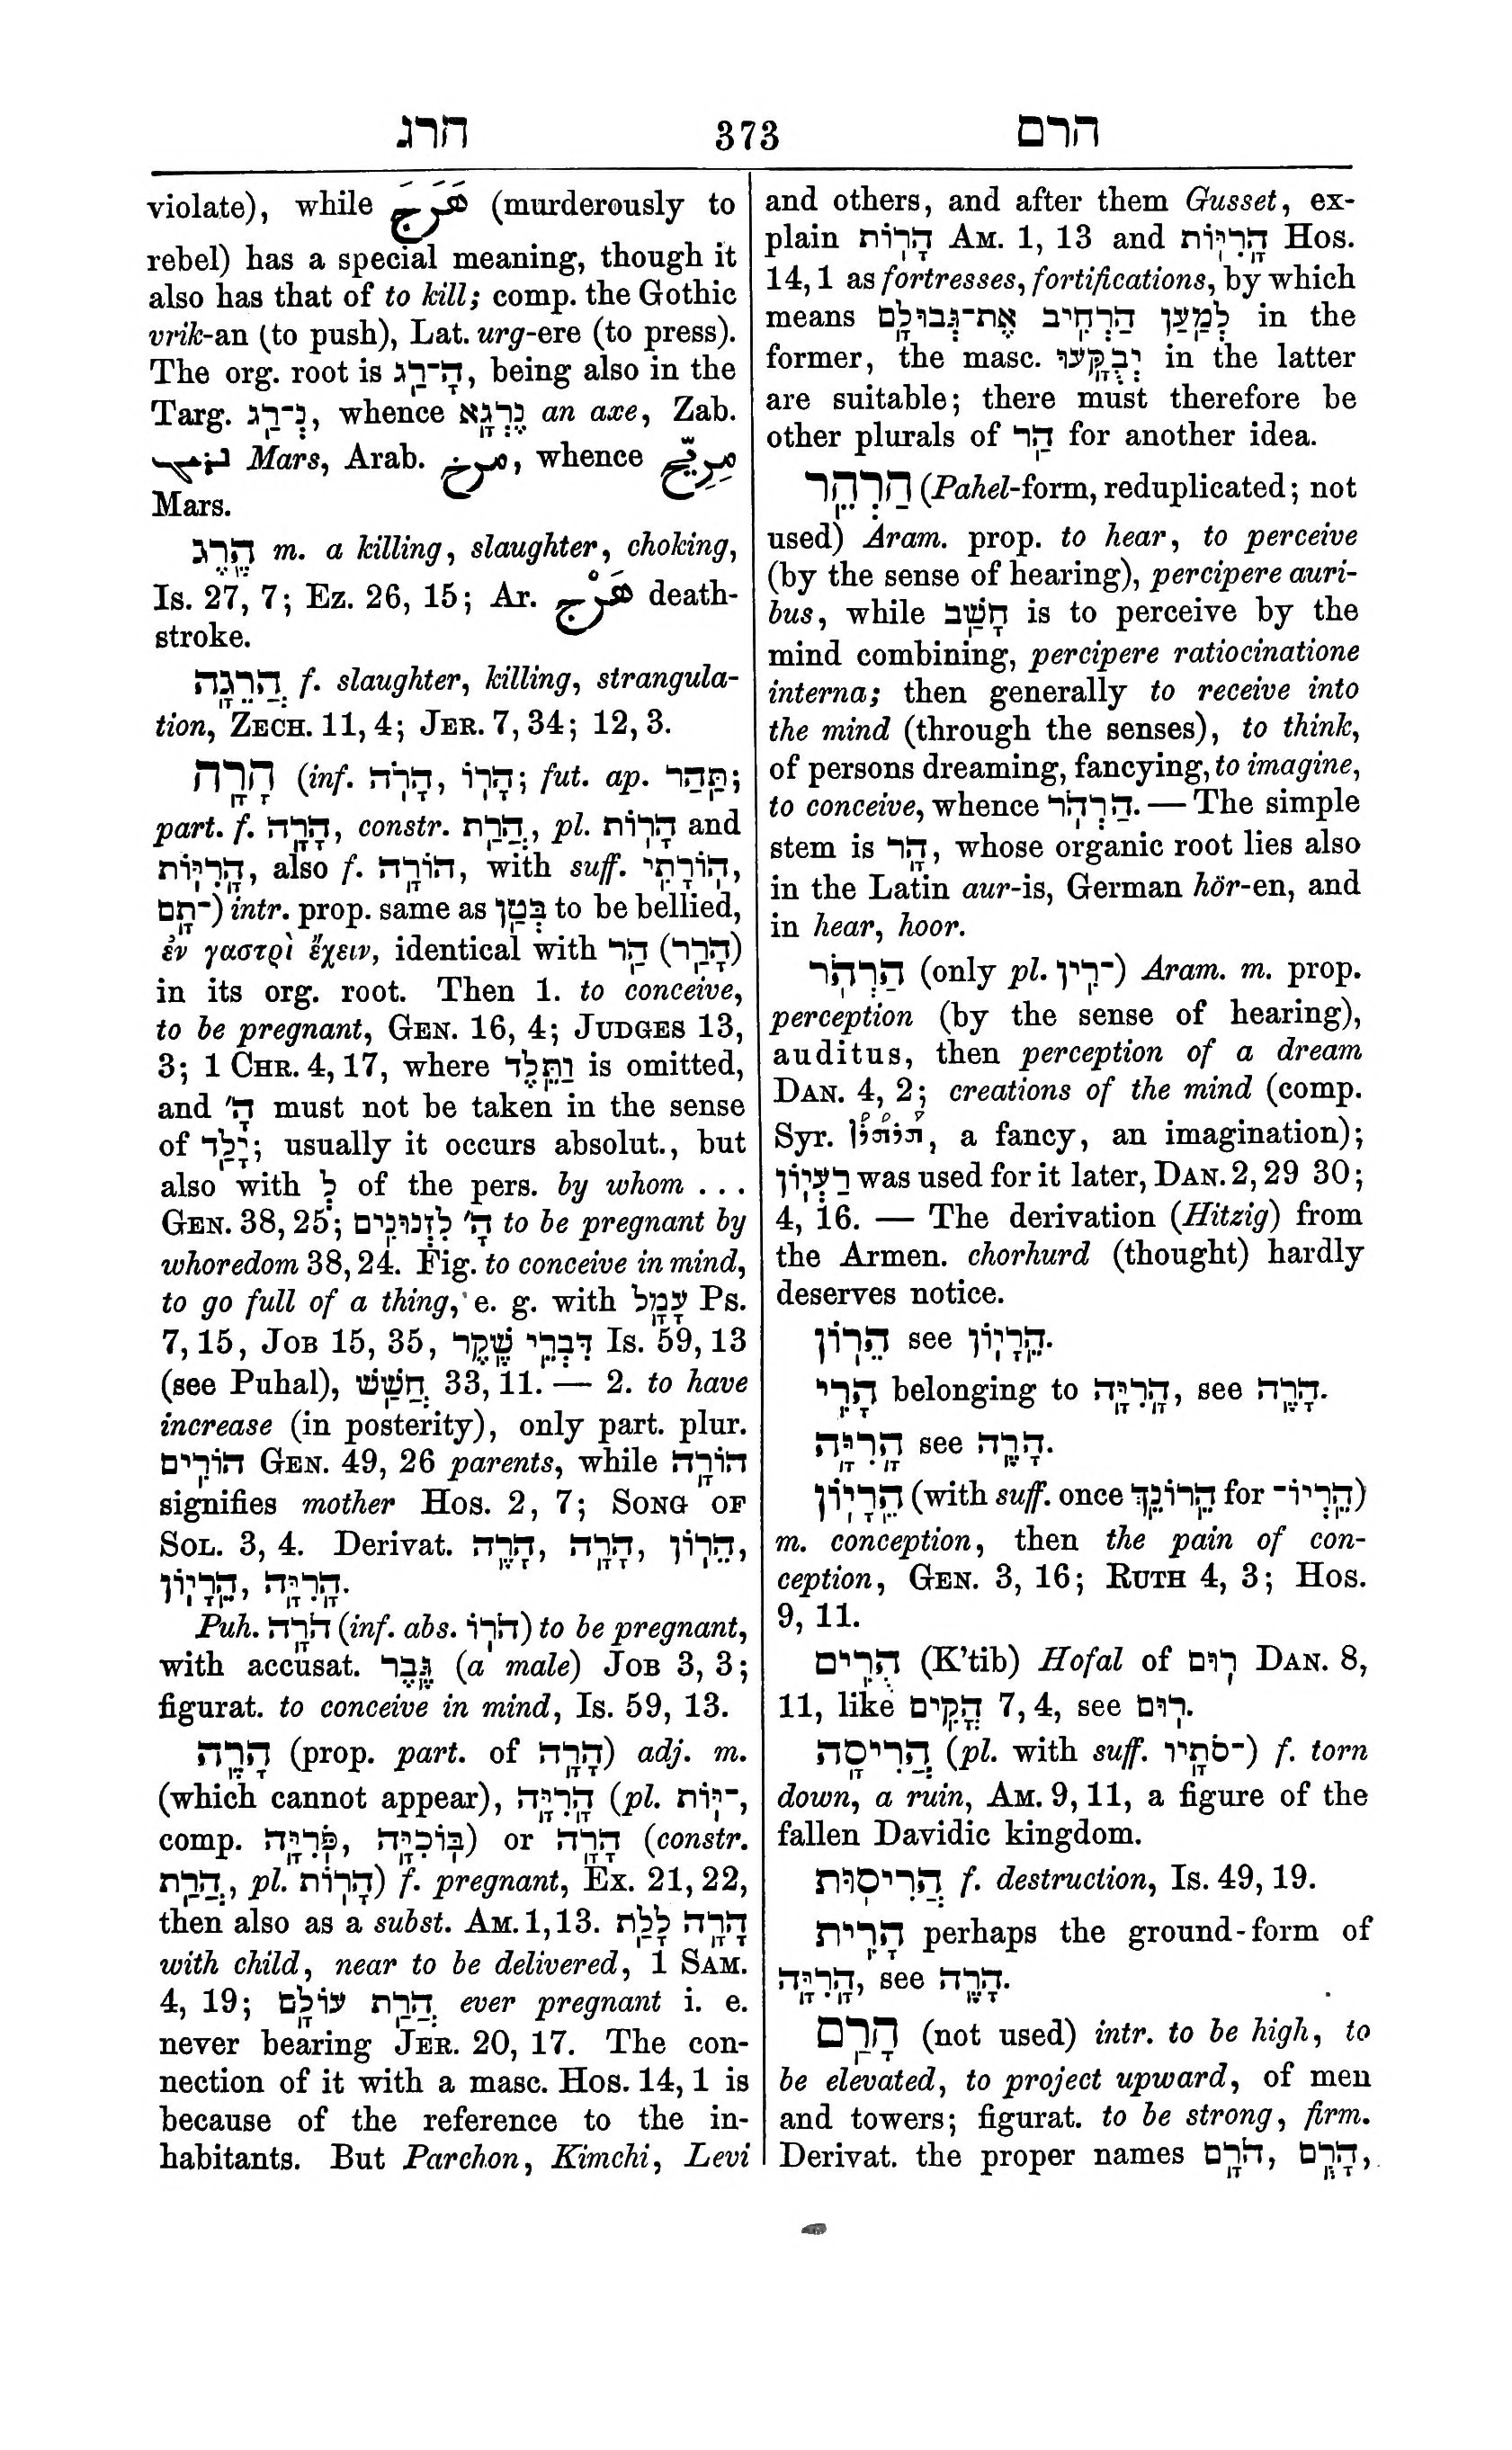 הרג 373 הרם
violate), while هَرَجَ (murderously to
rebel) has a special meaning, though it
also has that of to kill; comp. the Gothic
vrik-an (to push), Lat. urg-ere (to press).
The org. root is הָ־רַג, being also in the
Targ. נְ־רַג, whence נֶרְגָּא an axe, Zab.
Mars, Arab. مرخ, whence مِرِّيخ
Mars.
הֶרֶג m. a killing, slaughter, choking,
Is. 27, 7; Ez. 26, 15; Ar. هَرْج death-
stroke.
הֲרֵגָה f. slaughter, killing, strangula-
tion, Zech. 11, 4; Jer. 7, 34; 12, 3.
הָרָה (inf. הָרֹה, הָרוֹ; fut. ap. תַּהַר;
part. f. הָרָה, constr. הֲרַת, pl. הָרוֹת and
הָרִיּוֹת, also f. הוֹרָה, with suff. הוֹרָתִי,
־תָם) intr. prop. same as בָּטֶן to be bellied,
ἐν γαστρὶ ἔχειν, identical with הַר (הָרַר)
in its org. root. Then 1. to conceive,
to be pregnant, Gen. 16, 4; Judges 13,
3; 1 Chr. 4, 17, where וַתֵּלֶד is omitted,
and הָ׳ must not be taken in the sense
of יָלַד; usually it occurs absolut., but
also with לְ of the pers. by whom ...
Gen. 38, 25; הָ׳ לִזְנוּנִים to be pregnant by
whoredom 38, 24. Fig. to conceive in mind,
to go full of a thing, e. g. with עָמָל Ps.
7, 15, Job 15, 35, דִּבְרֵי שֶׁקֶר Is. 59, 13
(see Puhal), חֲשַׁשׁ 33, 11. — 2. to have
increase (in posterity), only part. plur.
הוֹרִים Gen. 49, 26 parents, while הוֹרָה
signifies mother Hos. 2, 7; Song of
Sol. 3, 4. Derivat. הָרֶה, הָרָה, הֵרוֹן,
הֵרָיוֹן, הָרִיָּה.
Puh. הֹרָה (inf. abs. הֹרוֹ) to be pregnant,
with accusat. גֶּבֶר (a male) Job 3, 3;
figurat. to conceive in mind, Is. 59, 13.
הָרֶה (prop. part. of הָרָה) adj. m.
(which cannot appear), הָרִיָּה (pl. ־יּוֹת,
comp. פֹּרִיָּה, בּוֹכִיָּה) or הָרָה (constr.
הֲרַת, pl. הָרוֹת) f. pregnant, Ex. 21, 22,
then also as a subst. Am. 1, 13. הָרָה לָלַת
with child, near to be delivered, 1 Sam.
4, 19; הֲרַת עוֹלָם ever pregnant i. e.
never bearing Jer. 20, 17. The con-
nection of it with a masc. Hos. 14, 1 is
because of the reference to the in-
habitants. But Parchon, Kimchi, Levi
and others, and after them Gusset, ex-
plain הָרוֹת Am. 1, 13 and הָרִיּוֹת Hos.
14, 1 as fortresses, fortifications, by which
means לְמַעַן הַרְחִיב אֶת־גְּבוּלָם in the
former, the masc. יְבֻקָּעוּ in the latter
are suitable; there must therefore be
other plurals of הַר for another idea.
הַרְהֵר (Pahel-form, reduplicated; not
used) Aram. prop. to hear, to perceive
(by the sense of hearing), percipere auri-
bus, while חָשַׁב is to perceive by the
mind combining, percipere ratiocinatione
interna; then generally to receive into
the mind (through the senses), to think,
of persons dreaming, fancying, to imagine,
to conceive, whence הַרְהֹר. — The simple
stem is הָר, whose organic root lies also
in the Latin aur-is, German hör-en, and
in hear, hoor.
הַרְהֹר (only pl. ־רִין) Aram. m. prop.
perception (by the sense of hearing),
auditus, then perception of a dream
Dan. 4, 2; creations of the mind (comp.
Syr. , a fancy, an imagination);
רַעְיוֹן was used for it later, Dan. 2, 29 30;
4, 16. — The derivation (Hitzig) from
the Armen. chorhurd (thought) hardly
deserves notice.
הֵרוֹן see הֵרָיוֹן.
הָרִי belonging to הָרִיָּה, see הָרֶה.
הָרִיָּה see הָרֶה.
הֵרָיוֹן (with suff. once הֵרוֹנֵךְ for הֵרְיוֹ־)
m. conception, then the pain of con-
ception, Gen. 3, 16; Ruth 4, 3; Hos.
9, 11.
הֻרִים (K’tib) Hofal of רוּם Dan. 8,
11, like הֳקִים 7, 4, see רוּם.
הֲרִיסָה (pl. with suff. ־סֹתָיו) f. torn
down, a ruin, Am. 9, 11, a figure of the
fallen Davidic kingdom.
הֲרִיסוּת f. destruction, Is. 49, 19.
הָרִית perhaps the ground-form of
הָרִיָּה, see הָרֶה.
הָרַם (not used) intr. to be high, to
be elevated, to project upward, of men
and towers; figurat. to be strong, firm.
Derivat. the proper names הֹרָם, הָרֻם,